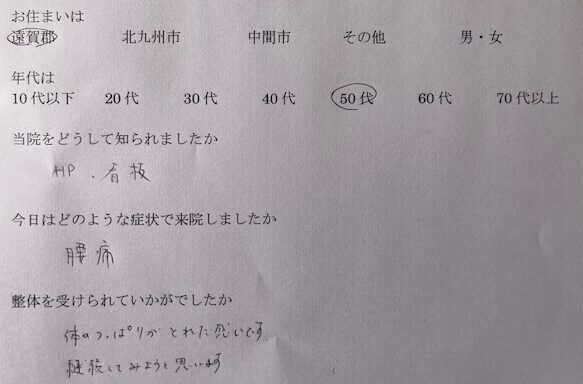 お住まいは
遠賀郡 北九州市 中間市 その他 男・女
年代は
10代以下 20代 30代 40代 50代 60代 70代以上
当院をどうして知られましたか
HP．看板
今日はどのような症状で来院しましたか
腰痛
整体を受けられていかがでしたか
体のつっぱりがとれた思いです
継続してみようと思います